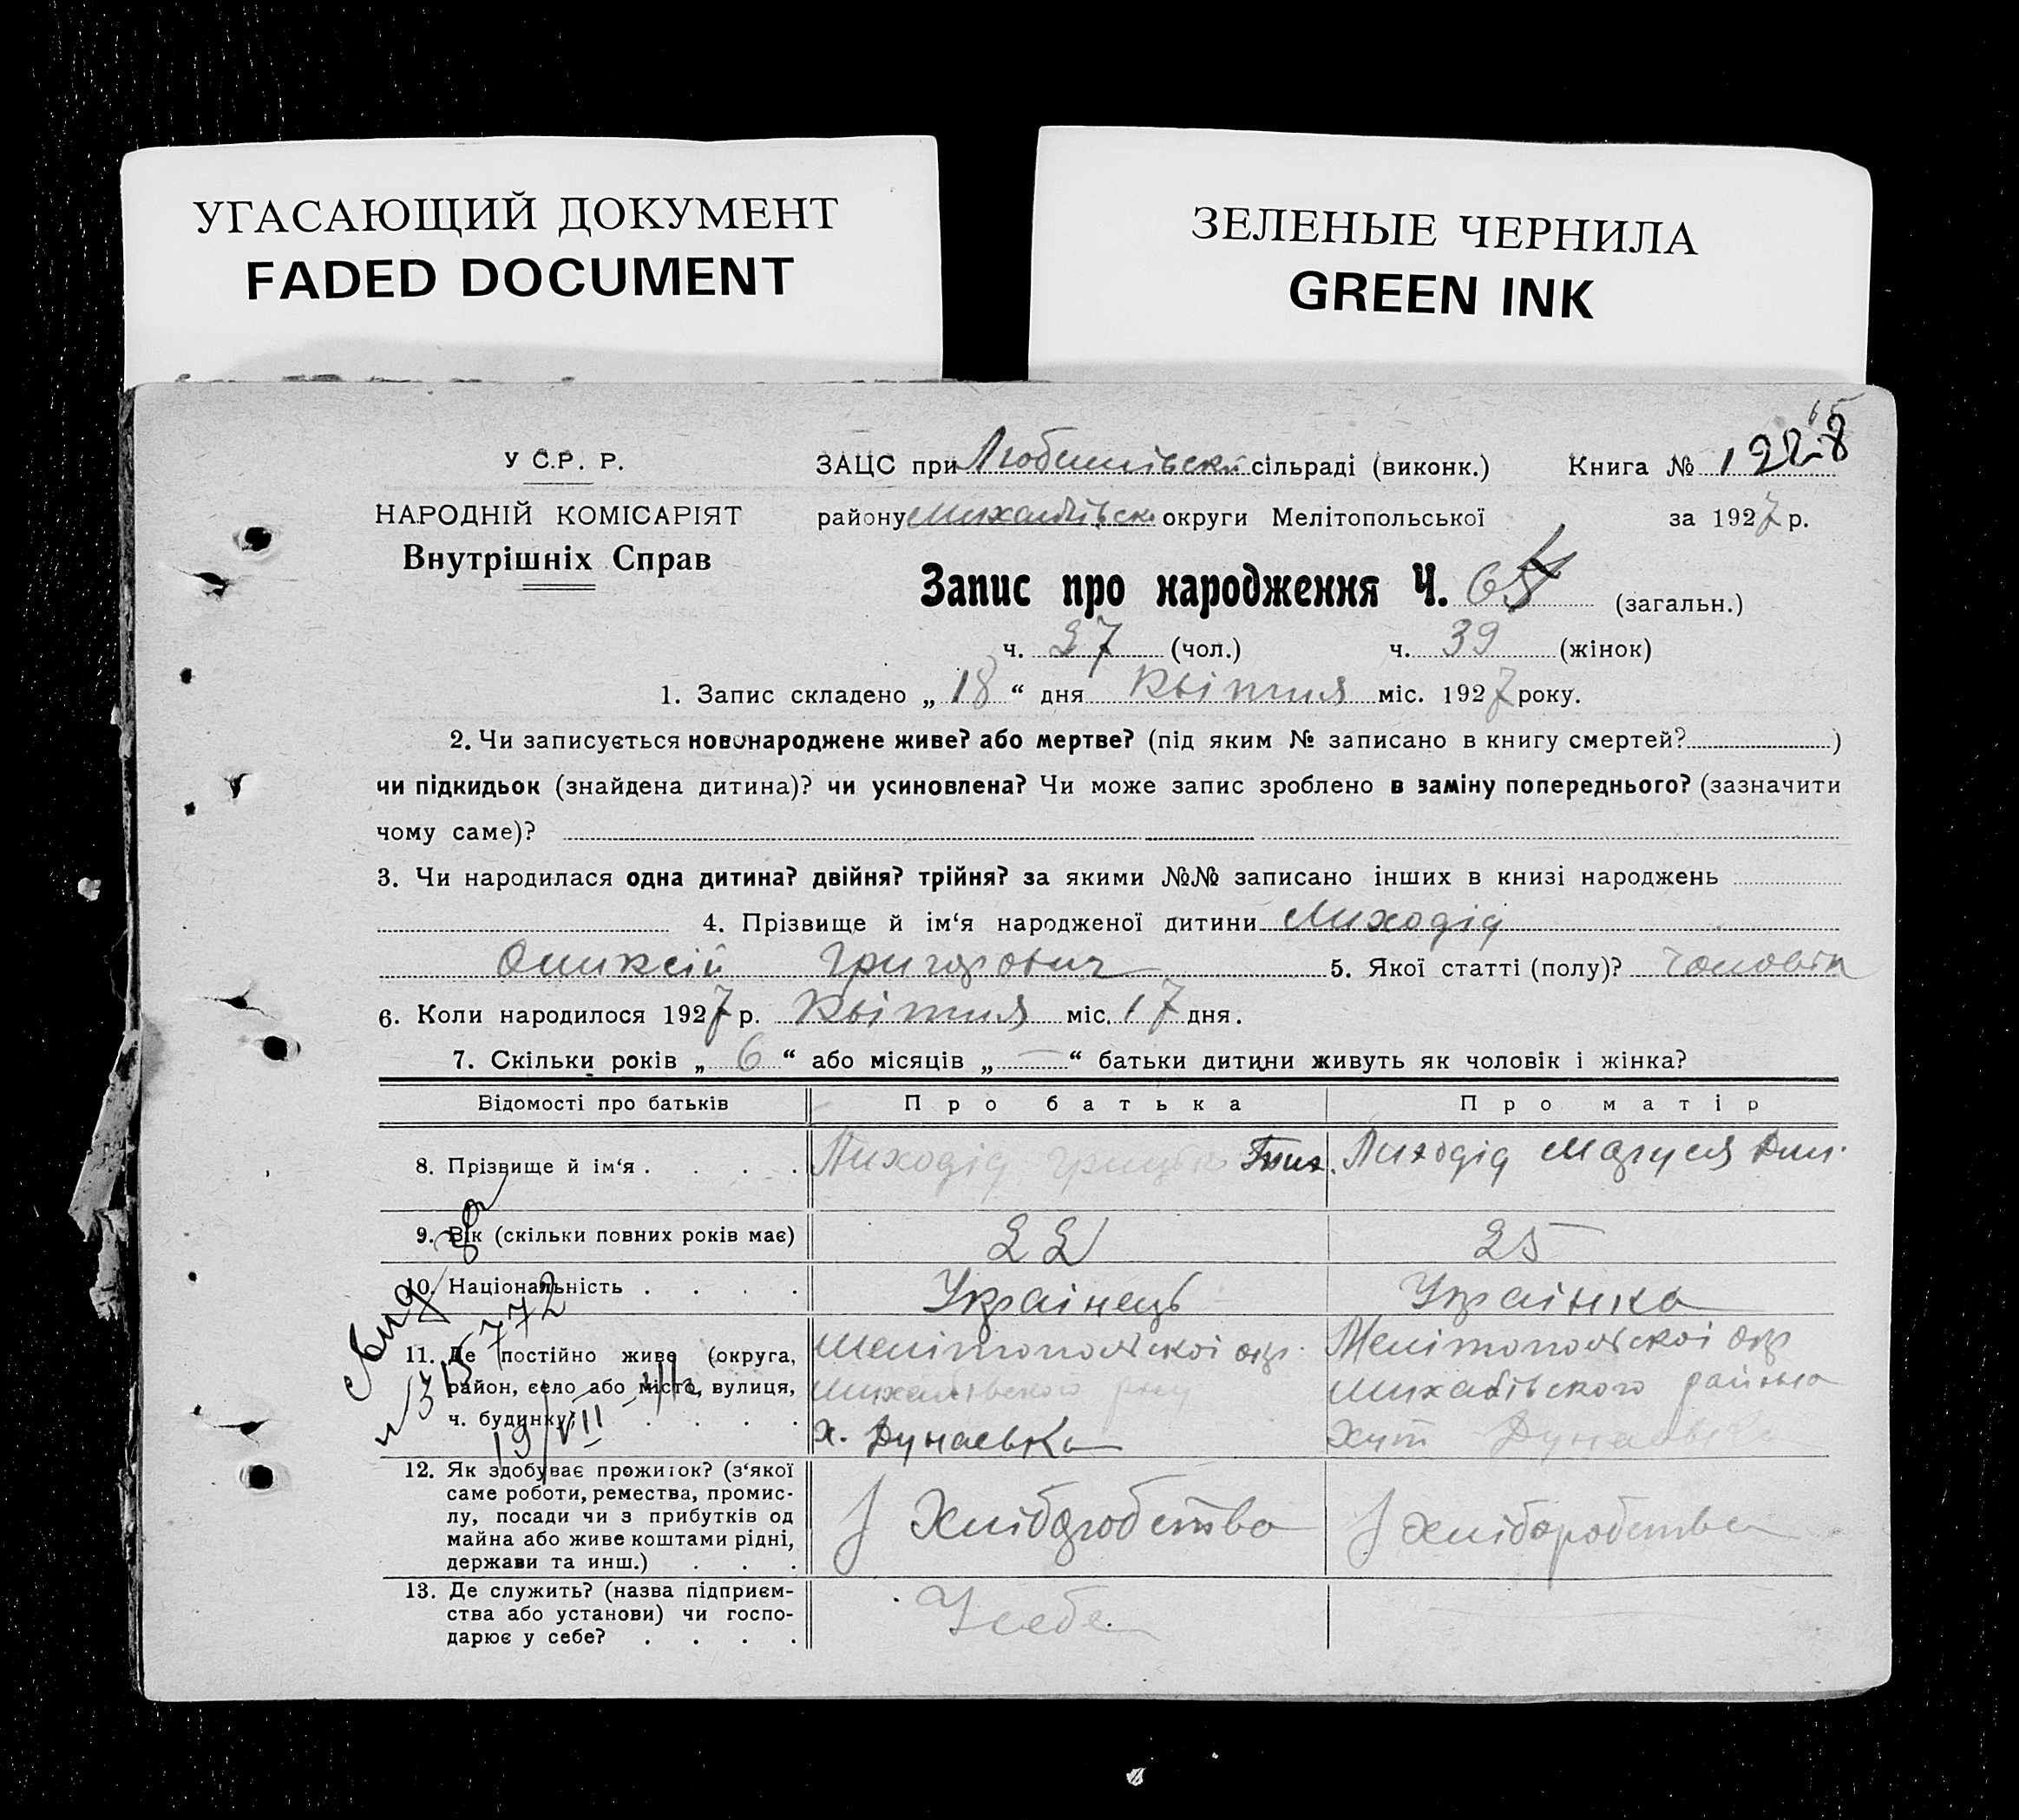 УГАСАЮЩИЙ ДОКУМЕНТ
FADED DOCUMENT
ЗЕЛЕНЫЕ ЧЕРНИЛА
GREEN INK
У С.Р. Р.
НАРОДНІЙ КОМІСАРІЯТ
Внутрішніх Справ
ЗАЦС при Любимівскій сільраді (виконк.) Книга № 1228
району Михайлівськ округи Мелітопольської за 1927 р.
Запис про народження Ч. (загальн.)
ч. 27 (чол.) ч. 39 (жінок)
1. Запис складено „ 18 “ дня Квітня міс. 1927 року.
2. Чи записується новонароджене живе? або мертве? (під яким № записано в книгу смертей? )
чи підкидьок (знайдена дитина)? чи усиновлена? Чи може запис зроблено в заміну попереднього? (зазначити
чому саме)?
3. Чи народилася одна дитина? двійня? трійня? за якими №№ записано інших в книзі народжень
4. Прізвище й ім‘я народженої дитини Лиходід
Оликсій Григорович 5. Якої статті (полу)? Чоловік
6. Коли народилося 1927 р. Квітня міс. 17 дня.
7. Скільки років „ 6 “ або місяців „ — “ батьки дитини живуть як чоловік і жінка?
Відомості про батьків Про батька Про матір
8. Прізвище й ім‘я . . . . Лиходід Грицько Лиходід Маруся
9. Вік (скільки повних років має) 22 25
10. Національність . . . . Українець Українка
11. Де постійно живе (округа, район, село або місто, вулиця, ч. будинку)
Мелітопольскоі окр.
Михайлівского р-ну
х. Дунаевка
Мелітопольскоі окр
Михайлівского района
Хут Дунаевка
12. Як здобуває прожиток? (з‘якої саме роботи, ремества, промислу, посади чи з прибутків од майна або живе коштами рідні, держави та инш.) . . .
З Хліборобства
З хліборобства
13. Де служить? (назва підприємства або установи) чи господарює у себе? . . . .
У себе
19/VII